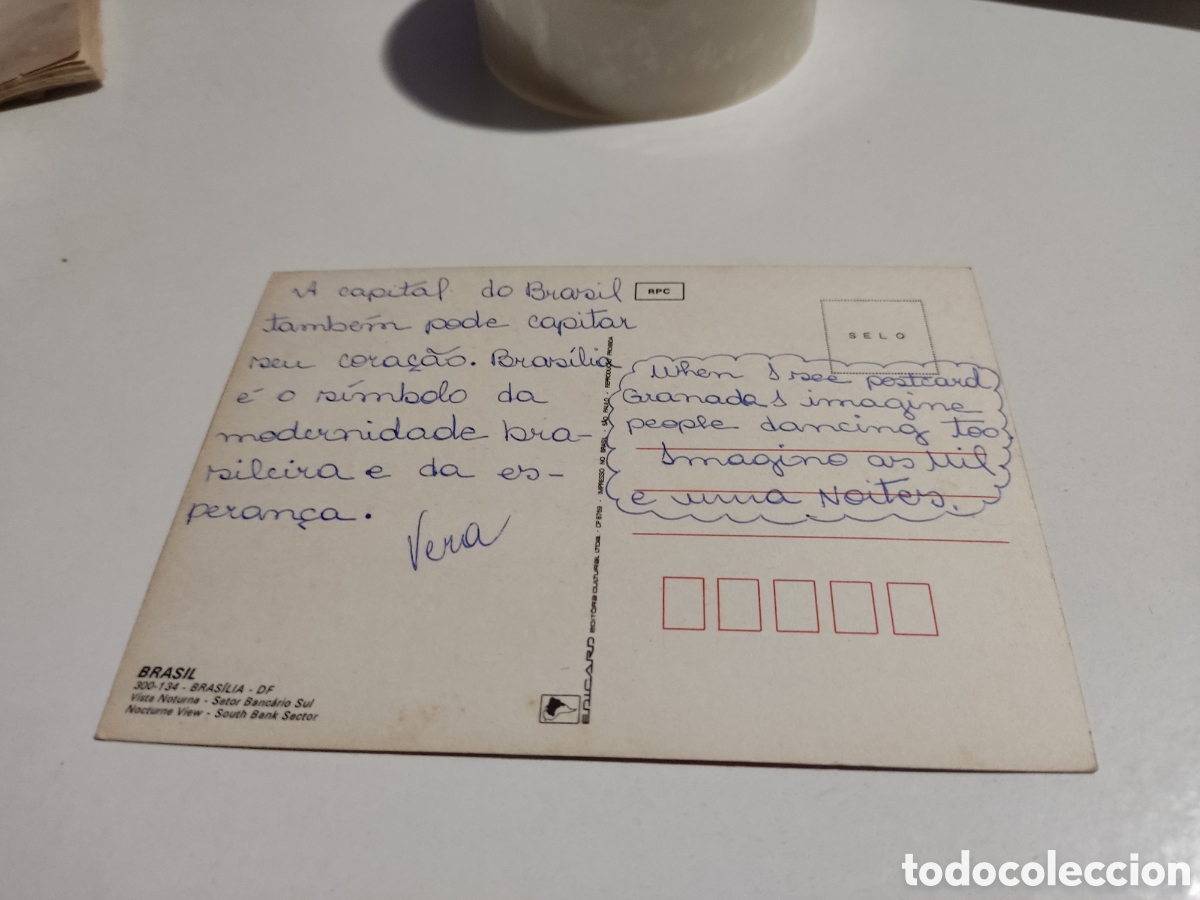 A capital do Brasil
também pode capitar
seu coração. Brasília
é o símbolo da
modernidade bra-
sileira e da es-
perança.
Vera
RPC
SELO
When I see postcard
Granada I imagine
people dancing too
Imagino as Mil
e uma Noites.
BRASIL
300-134 - BRASÍLIA - DF
Vista Noturna - Setor Bancário Sul
Nocturne View - South Bank Sector
EDICARD EDITORA CULTURAL LTDA. - CP 8769 - IMPRESSO NO BRASIL - SÃO PAULO - REPRODUÇÃO PROIBIDA
todocoleccion